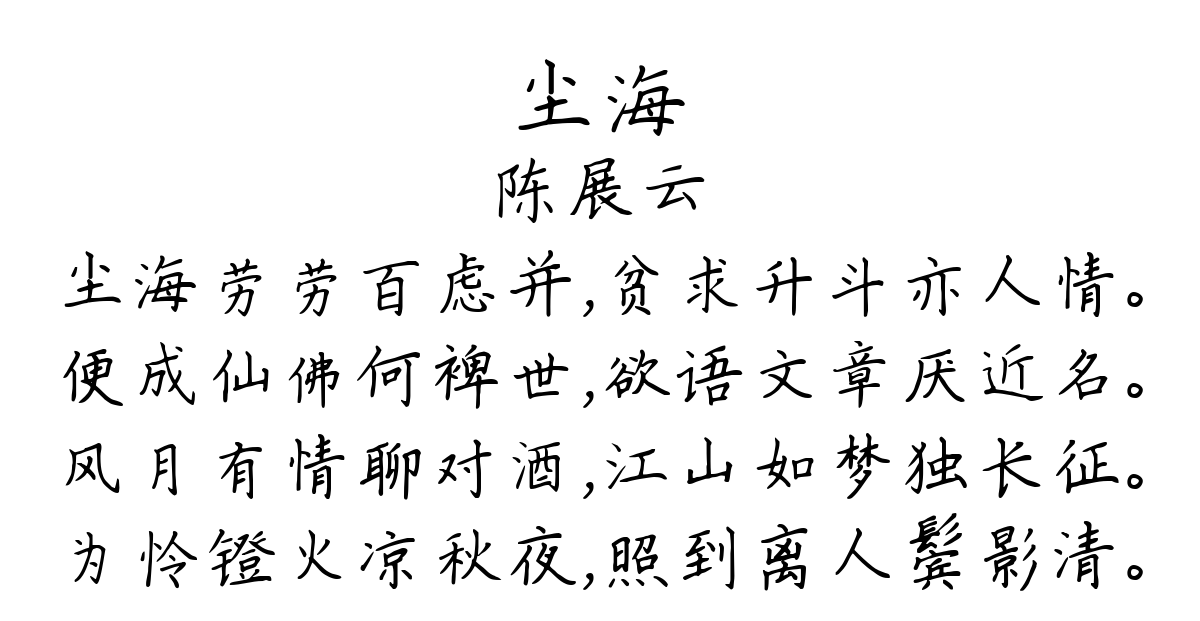 尘海
陈展云
尘海劳劳百虑并,贫求升斗亦人情。
便成仙佛何裨世,欲语文章厌近名。
风月有情聊对酒,江山如梦独长征。
为怜镫火凉秋夜,照到离人鬓影清。